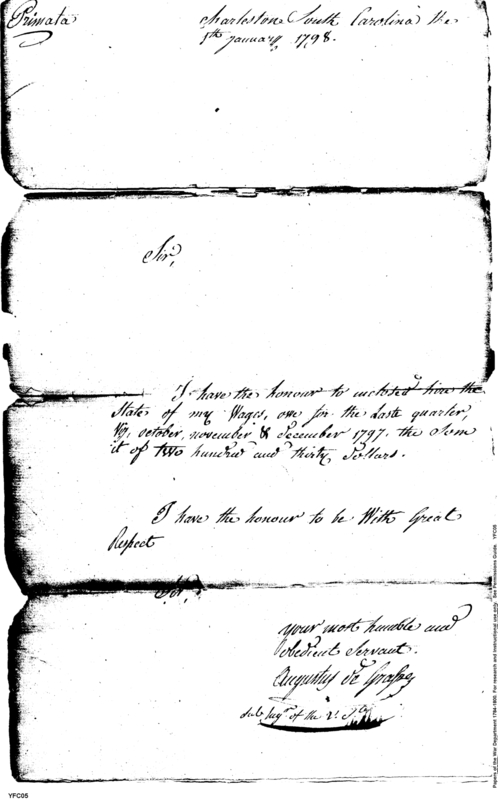 Primata
Charleston South Carolina the
5th January 1798.
Sir,
I have the honour to inclosed here the
State of my Wages, owe for the Laste quarter,
Viz, october, november & december 1797. the Som
it of two hundred and thirty Dollars.
I have the honour to be With Great
Respect
Sir.
your most humble and
obedient Servant.
Augustus De Grasse
sub Ingr of the 2d
Papers of the War Department 1784-1800. For research and instructional use only. See Permissions Guide. YFC05
YFC05